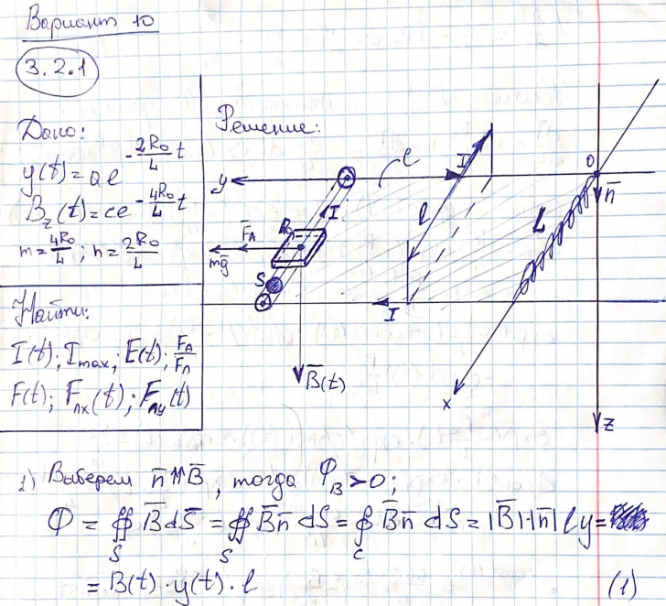 Вариант 10
3.2.1
Дано:
y(t) = a e^{-\frac{2R_0}{L}t}
B_z(t) = c e^{-\frac{4R_0}{L}t}
m = \frac{4R_0}{L}; n = \frac{2R_0}{L}
Найти:
I(t); I_{max}; E(t); \frac{F_A}{F_л}
F(t); F_{лx}(t); F_{лy}(t)
Решение:
y
l
I
O
\bar{n}
l
L
I
R_0
\bar{F}_A
m\bar{g}
S
I
\bar{B}(t)
x
z
1) Выберем \bar{n}⇈\bar{B}, тогда Φ_B > 0;
Φ = ∯_S \bar{B}d\bar{S} = ∯_S \bar{B}\bar{n} dS = ∮_c \bar{B}\bar{n} dS = |\bar{B}|·|\bar{n}| l y =
= B(t)·y(t)·l (1)